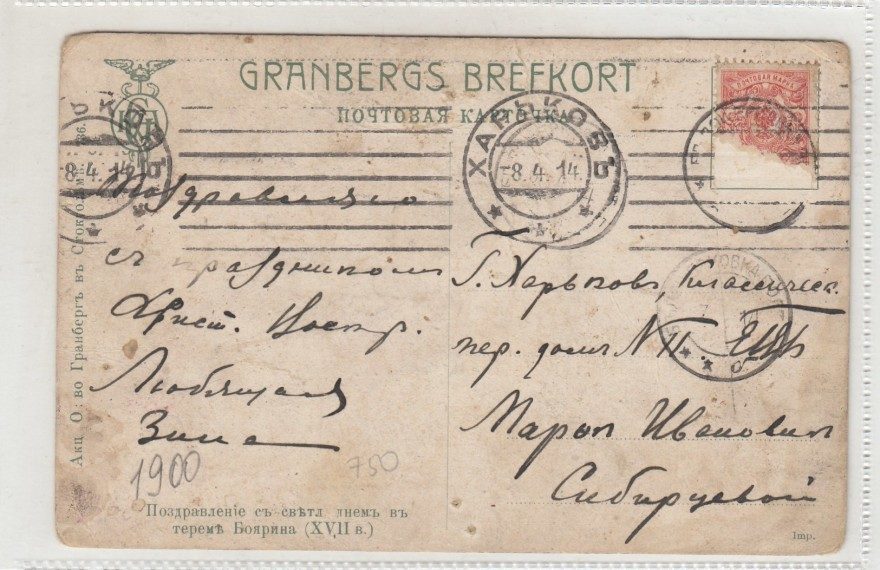 GRANBERGS BREFKORT
ПОЧТОВАЯ КАРТОЧКА
ПОЧТОВАЯ МАРКА
ХАРЬКОВЪ
8.4.14
8.4.14
Акц О:во Гранбергъ въ Стокгольмѣ.
Поздравляю
съ праздником
Христ. Воскр.
Любящая
Зина
1900
750
Г. Харьков, Классическ.
пер. домъ N 11.
Марiи Ивановнѣ
Сибирцевой
Поздравленіе съ свѣтл днемъ въ
теремѣ Боярина (XVII в.)
Imp.